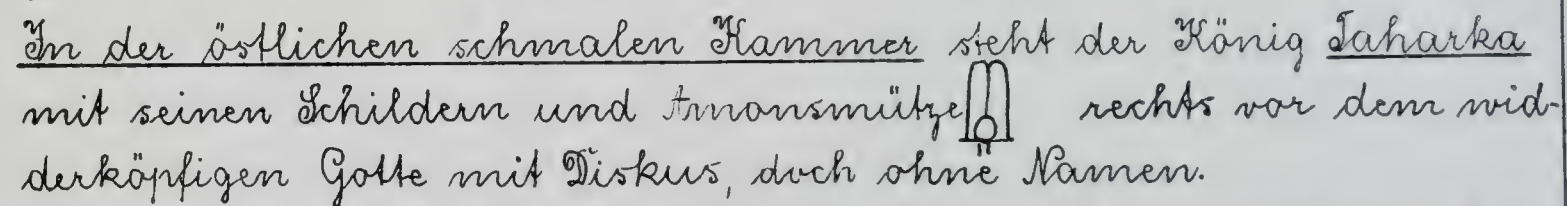 In der östlichen schmalen Kammer steht der König Taharka
mit seinen Schildern und Amonsmütze rechts vor dem wid-
derköpfigen Gotte mit Diskus, doch ohne Namen.